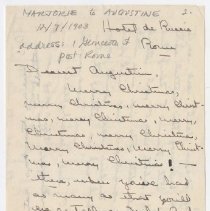 MARJORIE to AUGUSTINE 2.
12/9/1903 Hotel de Russie
address: Rome
Dearest Augustine,
Merry Christmas,
merry Christmas, merry Christ-
mas, merry Christmas,
merry Christmas, merry
Christmas, merry Christ-
mas, merry Christmas! —
there, when you've had
as many as that you'll